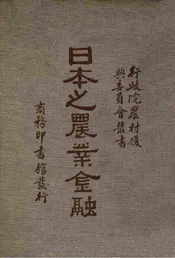 行政院農村復
興委員會叢書
日本之農業金融
商務印書館發行